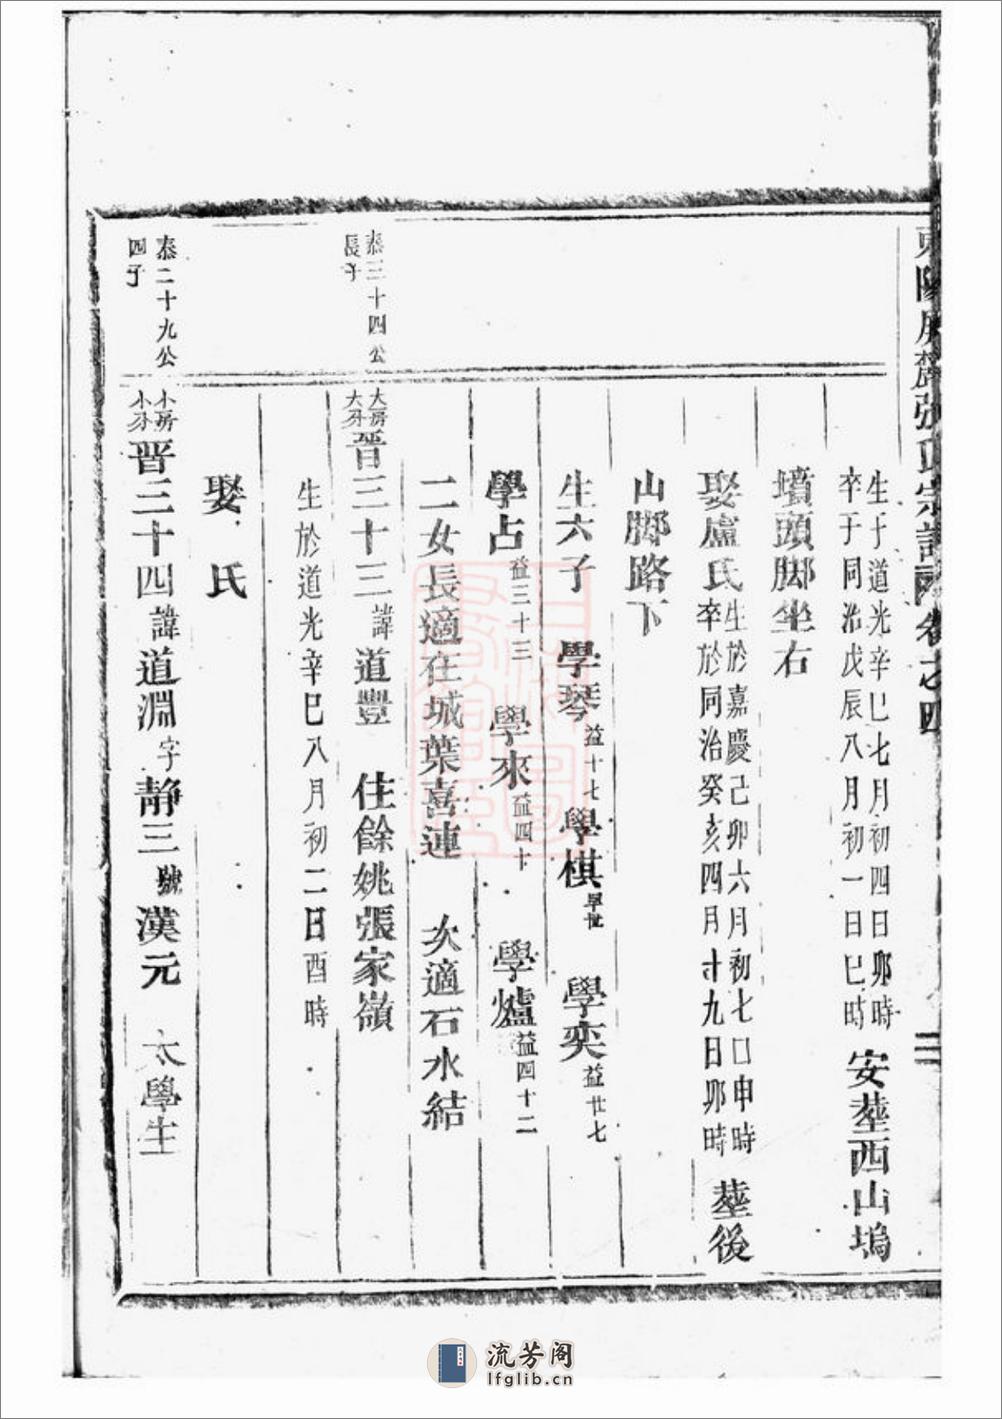 生于道光辛巳七月初四日卯時
卒于同治戊辰八月初一日巳時
安塟西山塢
墳頭脚坐右
娶盧氏
生於嘉慶己卯六月初七口申時
卒於同治癸亥四月廿九日卯時
塟後
山脚路下
生六子 學琴益十七 學棋早世 學奕益廿七
學占益三十三 學來益四十 學爐益四十二
二女長適在城葉喜連 次適石水結
泰三十四公
長子
大房
大分
晋三十三諱道豐 住餘姚張家嶺
生於道光辛巳八月初二日酉時
娶 氏
泰二十九公
四子
小房
小分
晋三十四諱道淵字靜三號漢元 太學生
流芳阁
lfglib.cn